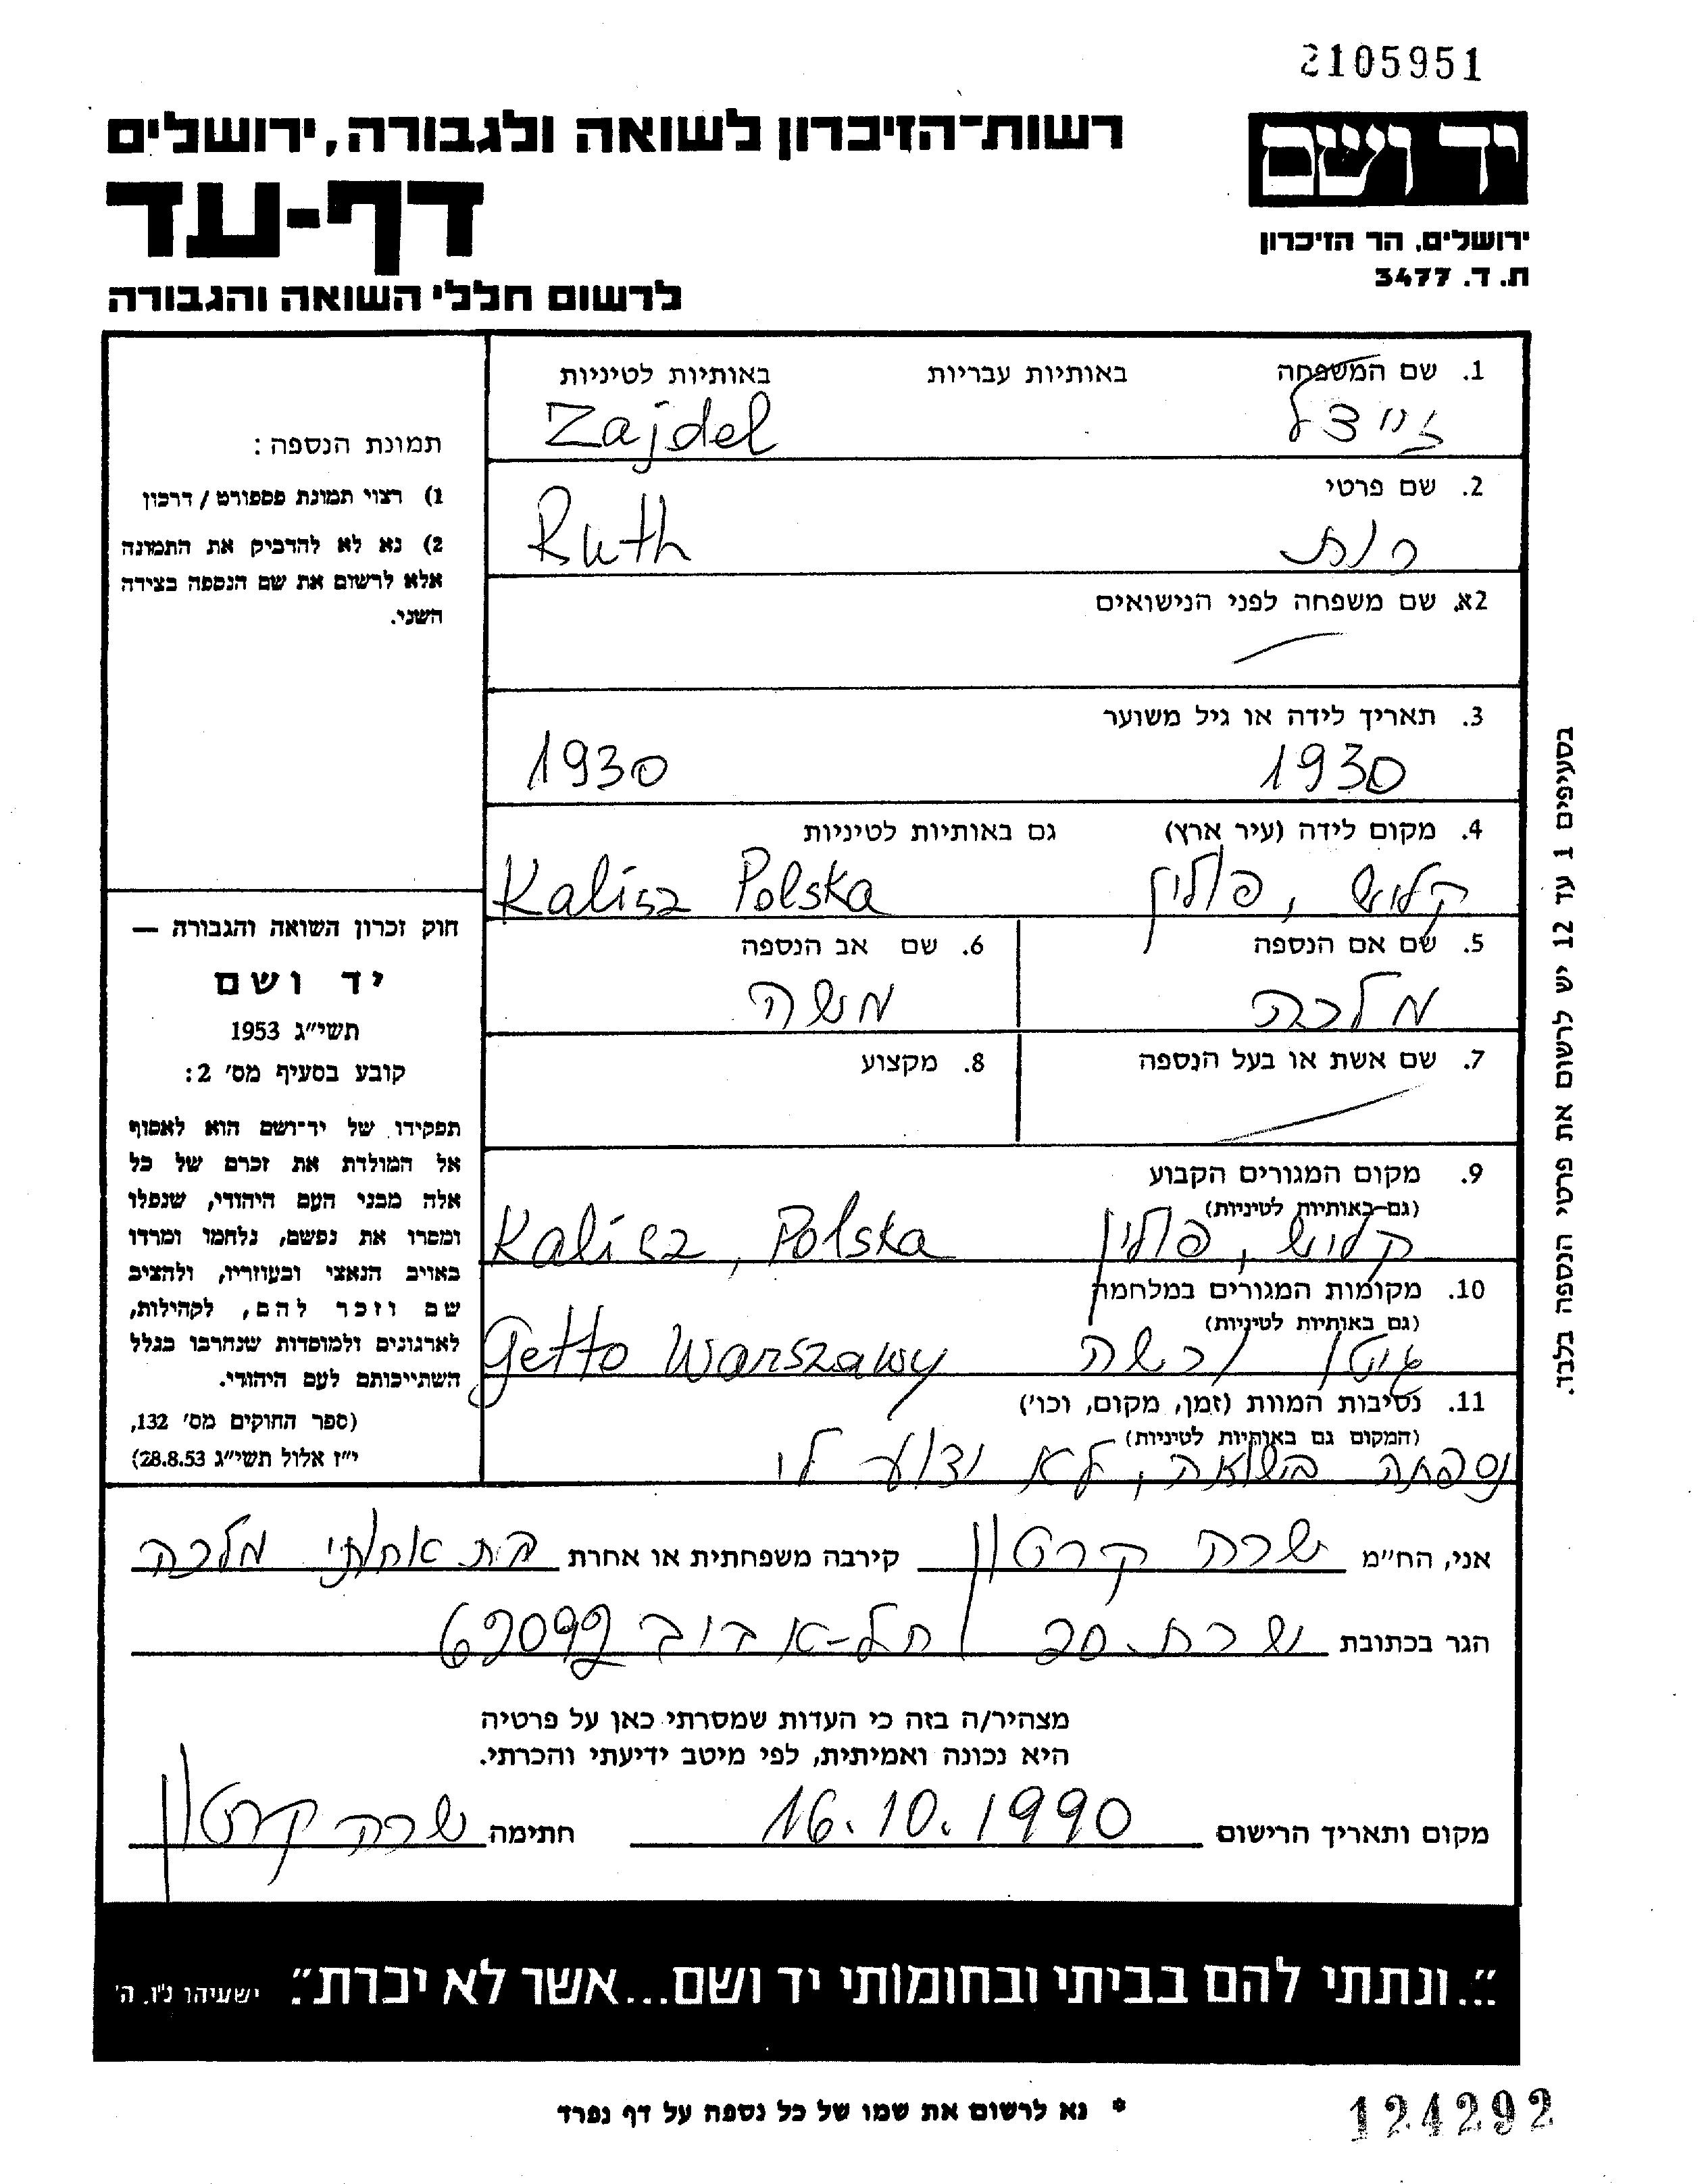 2105951
יד ושם
רשות־הזיכרון לשואה ולגבורה, ירושלים
דף-עד
ירושלים, הר הזיכרון
ת. ד. 3477
לרשום חללי השואה והגבורה
1. שם המשפחה באותיות עבריות באותיות לטיניות
זיידל Zajdel
2. שם פרטי
רות Ruth
2א. שם משפחה לפני הנישואים
3. תאריך לידה או גיל משוער
1930 1930
4. מקום לידה (עיר ארץ) גם באותיות לטיניות
קליש, פולין Kalisz Polska
5. שם אם הנספה 6. שם אב הנספה
מלכה משה
7. שם אשת או בעל הנספה 8. מקצוע
9. מקום המגורים הקבוע
(גם באותיות לטיניות)
קליש, פולין Kalisz, Polska
10. מקומות המגורים במלחמה
(גם באותיות לטיניות)
גיטו ורשה Getto Warszawy
11. נסיבות המוות (זמן, מקום, וכו')
(המקום גם באותיות לטיניות)
נספתה בשואה, לא ידוע לי
תמונת הנספה:
1) רצוי תמונת פספורט / דרכון
2) נא לא להדביק את התמונה
אלא לרשום את שם הנספה בצידה
השני.
חוק זכרון השואה והגבורה —
יד ושם
תשי״ג 1953
קובע בסעיף מס׳ 2:
תפקידו של יד־ושם הוא לאסוף
אל המולדת את זכרם של כל
אלה מבני העם היהודי, שנפלו
ומסרו את נפשם, נלחמו ומרדו
באויב הנאצי ובעוזריו, ולהציב
שם וזכר להם, לקהילות,
לארגונים ולמוסדות שנחרבו בגלל
השתייכותם לעם היהודי.
(ספר החוקים מס׳ 132,
י״ז אלול תשי״ג 28.8.53)
בסעיפים 1 עד 12 יש לרשום את פרטי הנספה בלבד.
אני, הח״מ שרה קרטון קירבה משפחתית או אחרת בת אחותי מלכה
הגר בכתובת 20 תל-אביב 62092
מצהיר/ה בזה כי העדות שמסרתי כאן על פרטיה
היא נכונה ואמיתית, לפי מיטב ידיעתי והכרתי.
מקום ותאריך הרישום 16.10.1990 חתימה שרה קרטון
״...ונתתי להם בביתי ובחומותי יד ושם...אשר לא יכרת״. ישעיהו נ״ו, ה׳
* נא לרשום את שמו של כל נספה על דף נפרד
124292